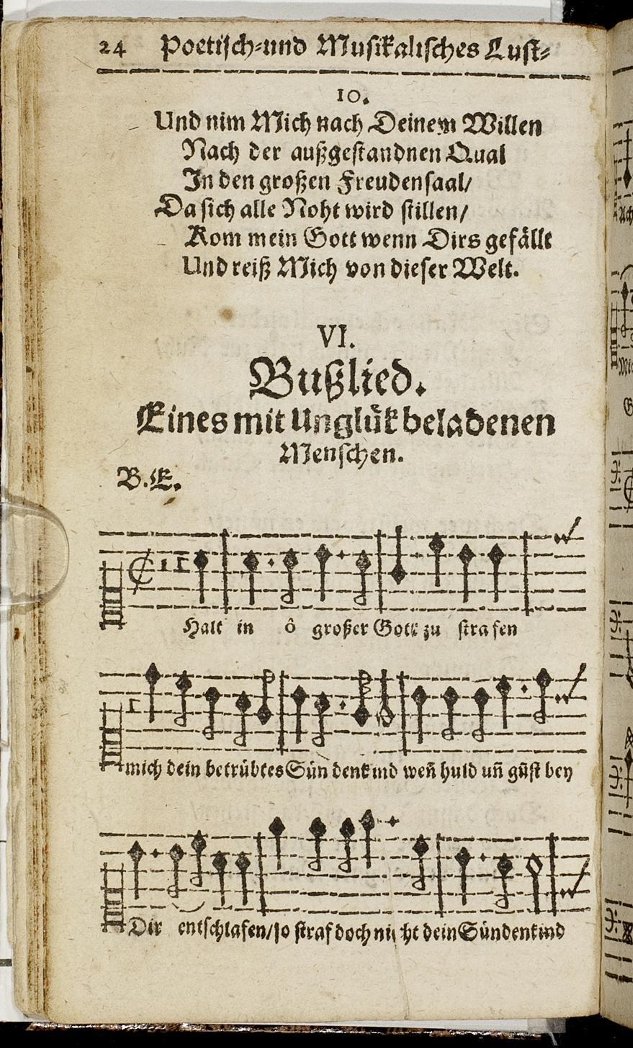 24 Poetisch-und Musikalisches Lust-
10.
Und nim Mich nach Deinem Willen
Nach der außgestandnen Qual
In den großen Freudensaal/
Da sich alle Noht wird stillen/
Kom mein Gott wenn Dirs gefällt
Und reiß Mich von dieser Welt.
VI.
Bußlied.
Eines mit Unglük beladenen
Menschen.
B.E.
Halt in ô großer Gott zu strafen
mich dein betrübtes Sündenkind weñ huld uñ gunst bey
Dir entschlafen/so straf doch nicht dein Sündenkind